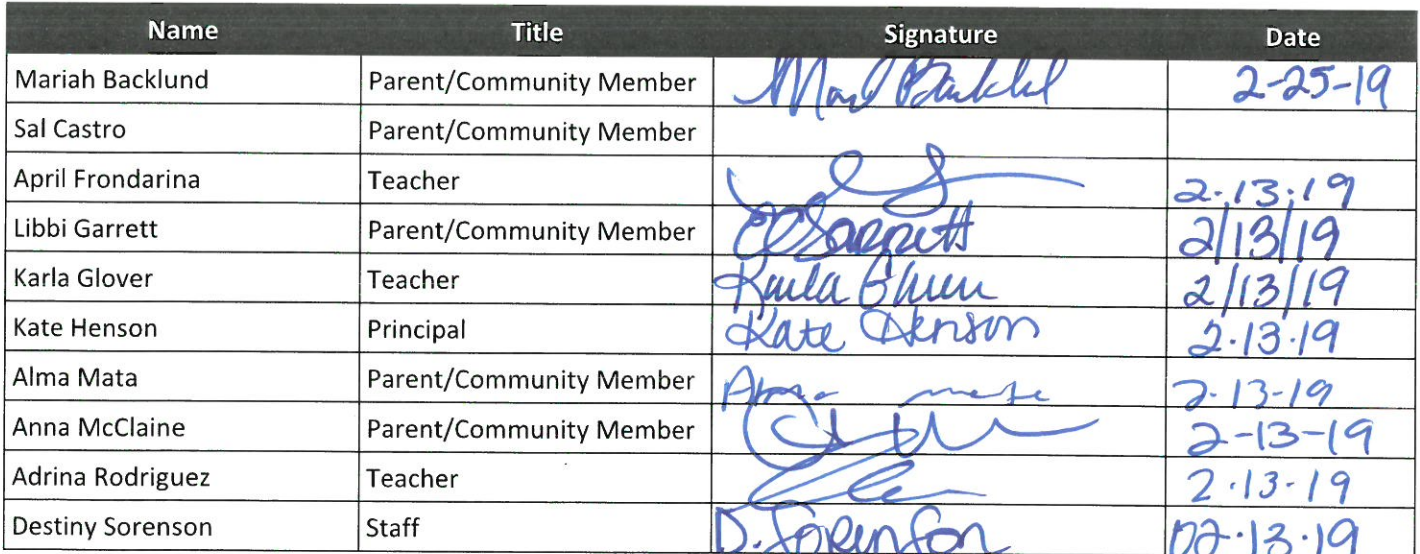 Name Title Signature Date
Mariah Backlund Parent/Community Member 2-25-19
Sal Castro Parent/Community Member
April Frondarina Teacher 2.13.19
Libbi Garrett Parent/Community Member Garrett 2/13/19
Karla Glover Teacher Karla Glover 2/13/19
Kate Henson Principal Kate Henson 2.13.19
Alma Mata Parent/Community Member Alma mata 2-13-19
Anna McClaine Parent/Community Member 2-13-19
Adrina Rodriguez Teacher 2.13-19
Destiny Sorenson Staff D. Sorenson 02.13.19